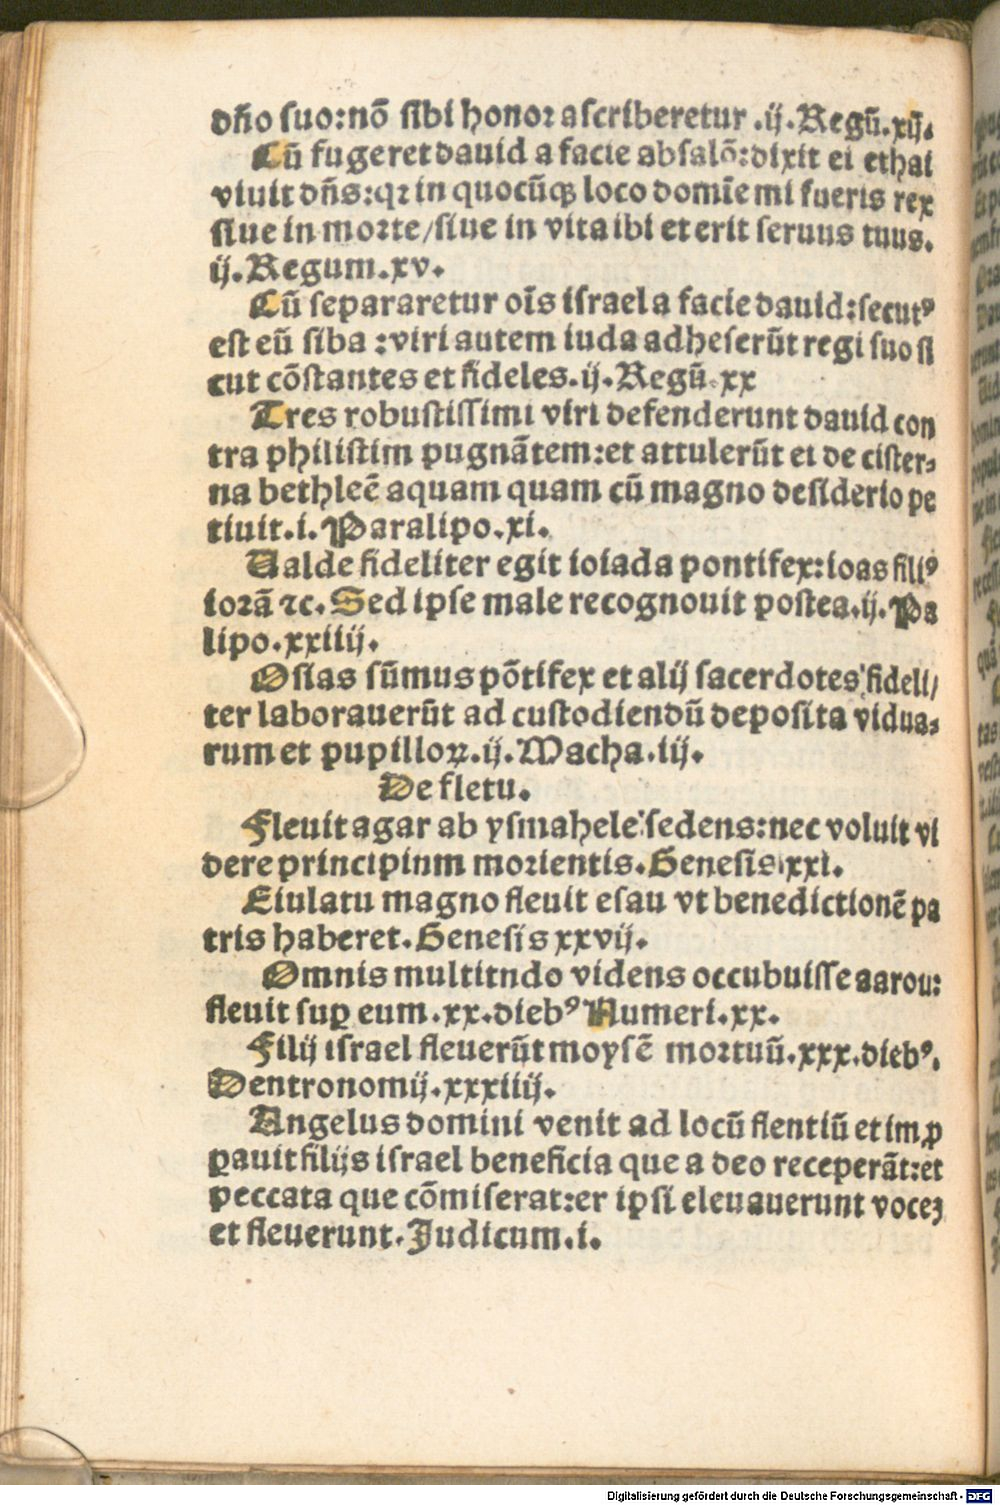 dño suo:nõ sibi honor ascriberetur .ij.Regũ.xij.
Cũ fugeret dauid a facie absalõ:dixit ei ethai
viuit dñs:qꝛ in quocũqꝫ loco domĩe mi fueris rex
siue in morte/siue in vita ibi et erit seruus tuus.
ij.Regum.xv.
Cũ separaretur oĩs israel a facie dauid:secutꝰ
est eũ siba :viri autem iuda adheserũt regi suo si
cut cõstantes et fideles.ij.Regũ.xx
Tres robustissimi viri defenderunt dauid con
tra philistim pugnãtem:et attulerũt ei de cister⸗
na bethleẽ aquam quam cũ magno desiderio pe
tiuit.i.Paralipo.xi.
Ualde fideliter egit ioiada pontifex:ioas filiꝰ
iorã ⁊c. Sed ipse male recognouit postea.ij.Pa
lipo.xxiiij.
Osias sũmus põtifex et alij sacerdotes fideli/
ter laborauerũt ad custodiendũ deposita vidua⸗
rum et pupilloꝝ.ij.Macha.iij.
De fletu.
Fleuit agar ab ysmahele sedens:nec voluit vi
dere principinm morientis.Genesis.xxi.
Eiulatu magno fleuit esau vt benedictionẽ pa
tris haberet.Genesis xxvij.
Omnis multitndo videns occubuisse aarou:
fleuit suꝑ eum.xx.diebꝰ Numeri.xx.
Filij israel fleuerũt moysẽ mortuũ.xxx.diebꝰ.
Dentronomij.xxxiiij.
Angelus domini venit ad locũ flentiũ et imꝓ
ꝑauit filijs israel beneficia que a deo receperãt:et
peccata que cõmiserat:er ipsi eleuauerunt voceꝫ
et fleuerunt.Judicum.i.
Digitalisierung gefördert durch die Deutsche Forschungsgemeinschaft - DFG